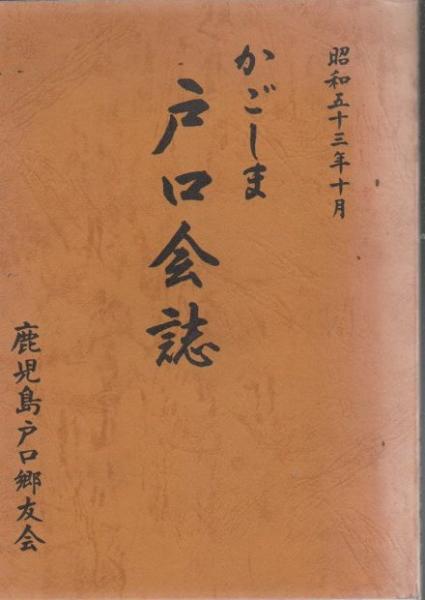 昭和五十三年十月
かごしま
戸口会誌
鹿児島戸口郷友会